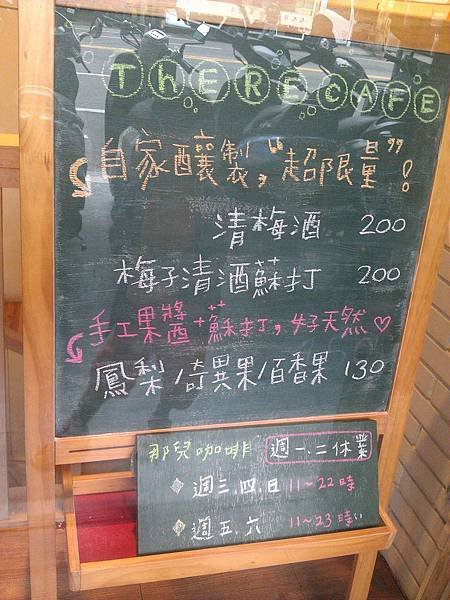 THERE CAFE
自家釀製,"超限量"!
清梅酒 200
梅子清酒蘇打 200
手工果醬++蘇打,好天然♡
鳳梨/奇異果/百香果 130
那兒咖啡 週一.二休業
週三.四.日 11~22時
週五.六 11~23時